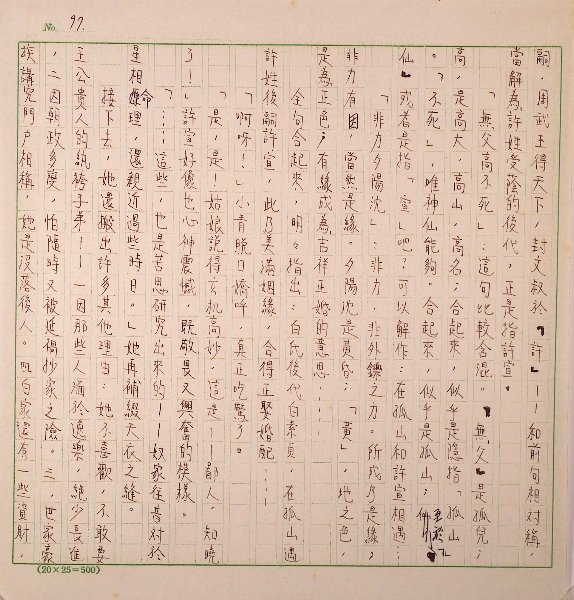 No. 97.
嗣，周武王得天下，封文叔於『許』——和前句相對稱，
當解為許姓受蔭的後代，正是指許宣。
「無父高不死」：這句比較含混。『無父』是孤兒；
高，是高大，高山，高名；合起來，似乎是隱指「孤山
。『不死』，唯神仙能夠。合起來，似乎是孤山；至於「
仙」或者是指「宣」吧？可以解作：在孤山和許宣相遇…
「非力夕陽沈」：非力，非外鑠之力。所成乃是緣；
非力有因，當然是緣。夕陽沈是黃昏；「黃」，地之色，
是為正色；有緣成為吉祥正婚的意思……
全句合起來，明明指出：白氏後代白素貞，在孤山遇
許姓後嗣許宣，此乃美滿姻緣，合得正娶婚配……
「啊呀！」小青脫口嬌呼，真正吃驚了。
「是，是！姑娘說得玄机高妙，這是——鄙人，知曉
了！」許宣好優也心神震懾，既敬畏又興奮的模樣。
「……這些，也是苦思研究出來的——奴家往昔对於
星相命理，還親近過些時日。」她再補綴天衣之縫。
接下去，她還搬出許多其他理由：她不喜歡，不敢要
王公貴人的紈袴子弟——一因那些人溺於逸樂，絕少長進
，二因朝政多變，怕隨時又被延禍抄家之險。三，世家豪
族講究門戶相稱，她是沒落後人。四白家還有一些資財，
(20×25＝500)